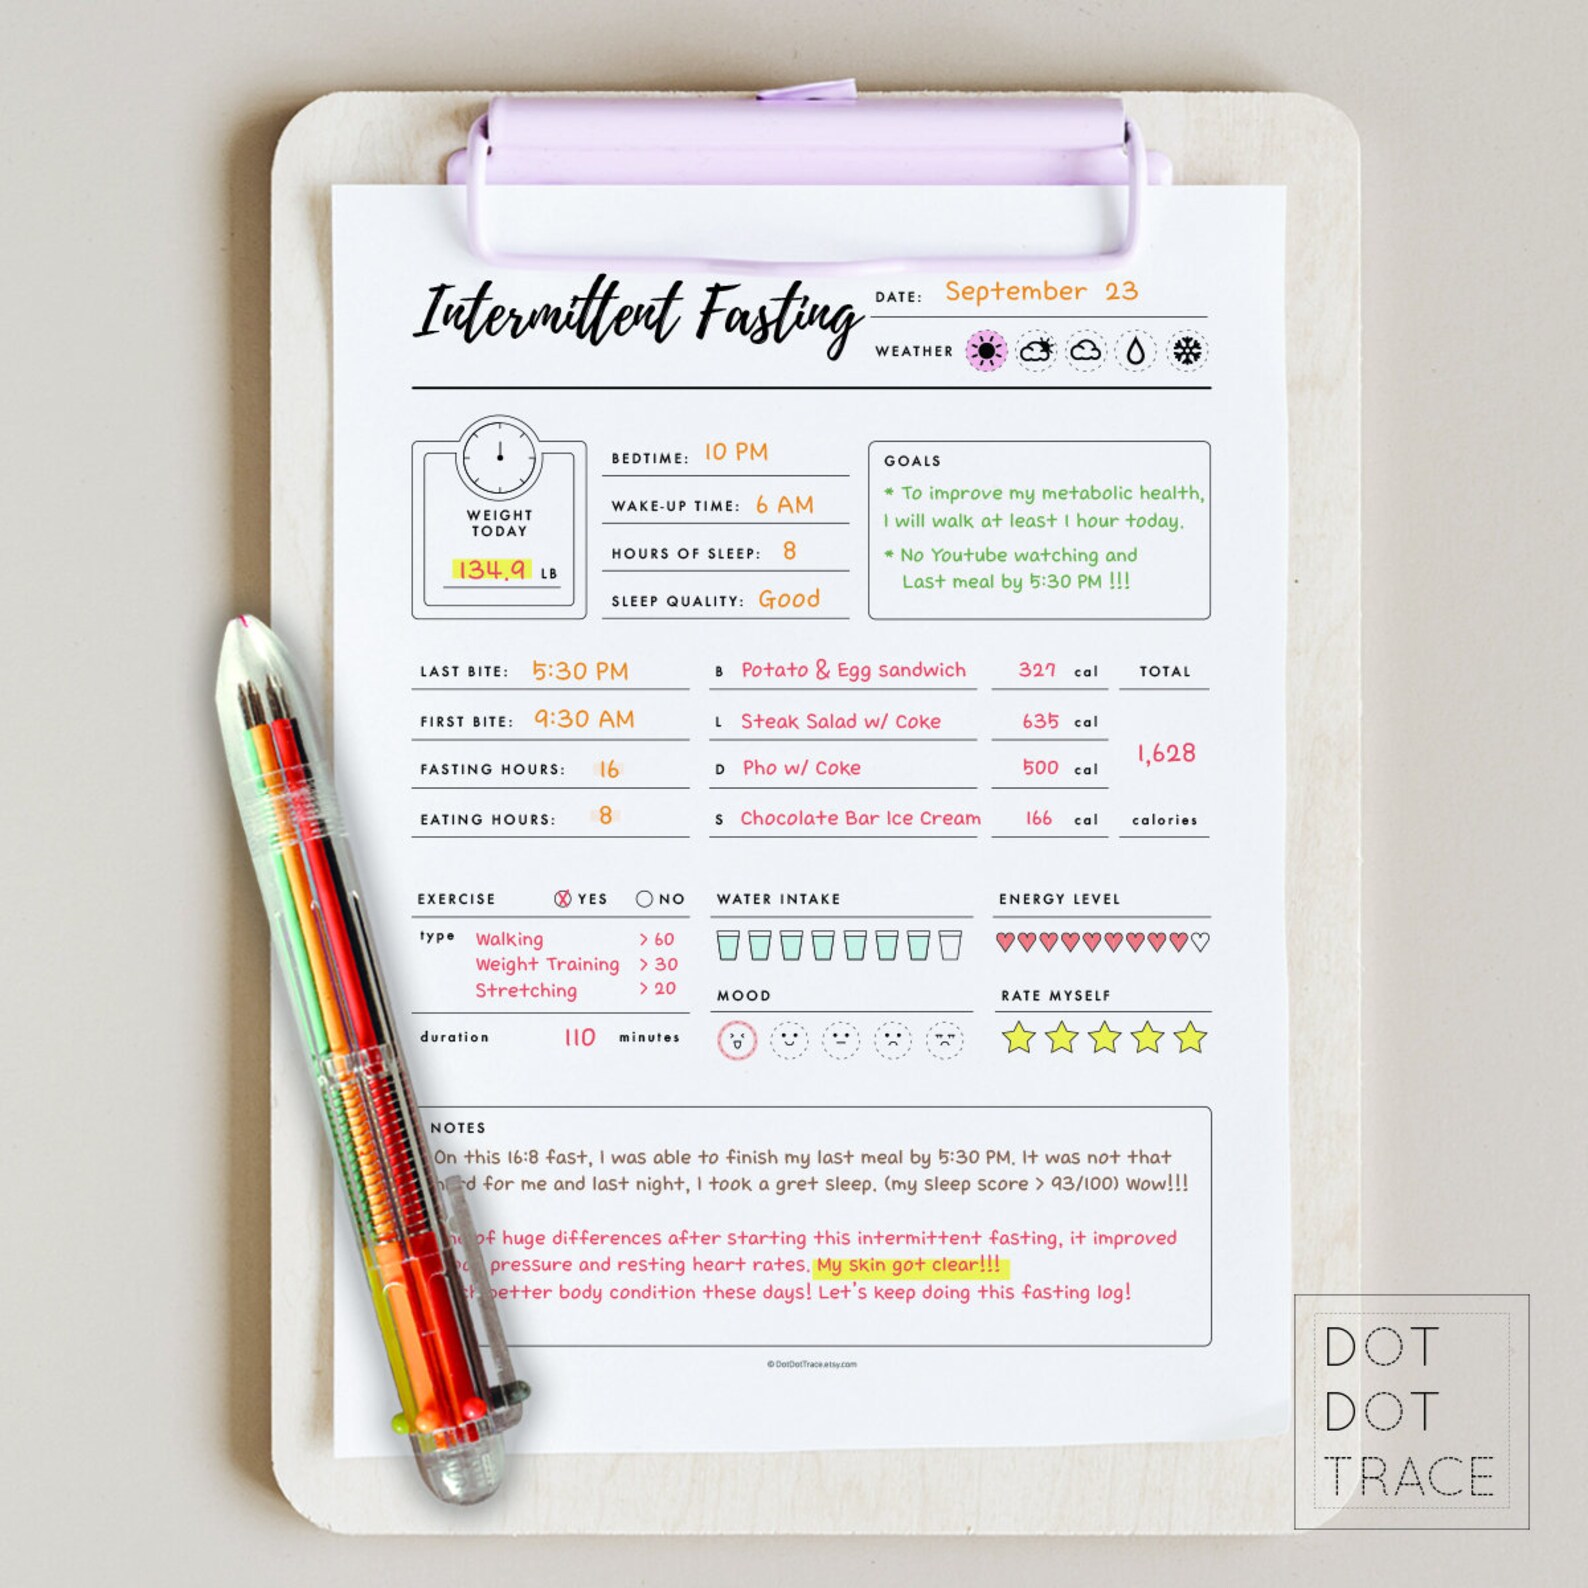 Intermittent Fasting
DATE: September 23
WEATHER
WEIGHT
TODAY
134.9 LB
BEDTIME: 10 PM
WAKE-UP TIME: 6 AM
HOURS OF SLEEP: 8
SLEEP QUALITY: Good
GOALS
* To improve my metabolic health,
I will walk at least 1 hour today.
* No Youtube watching and
Last meal by 5:30 PM !!!
LAST BITE: 5:30 PM
FIRST BITE: 9:30 AM
FASTING HOURS: 16
EATING HOURS: 8
B Potato & Egg sandwich 327 cal
L Steak Salad w/ Coke 635 cal
D Pho w/ Coke 500 cal
S Chocolate Bar Ice Cream 166 cal
TOTAL
1,628
calories
EXERCISE X YES NO
type Walking > 60
Weight Training > 30
Stretching > 20
duration 110 minutes
WATER INTAKE
ENERGY LEVEL
MOOD
RATE MYSELF
NOTES
On this 16:8 fast, I was able to finish my last meal by 5:30 PM. It was not that
for me and last night, I took a gret sleep. (my sleep score > 93/100) Wow!!!
of huge differences after starting this intermittent fasting, it improved
pressure and resting heart rates. My skin got clear!!!
better body condition these days! Let's keep doing this fasting log!
© DotDotTrace.etsy.com
DOT
DOT
TRACE